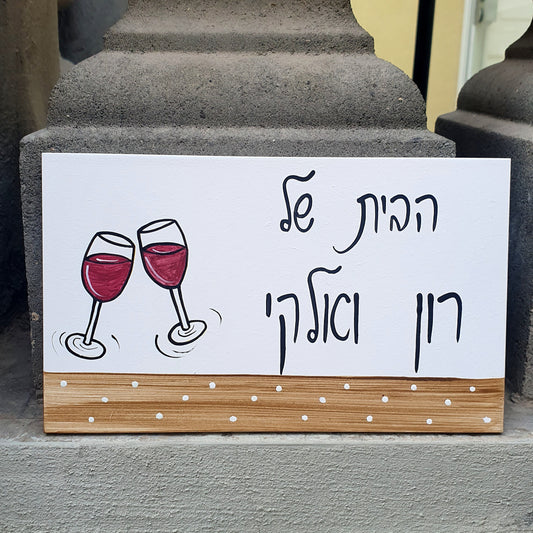 הבית של
רון ואלקי